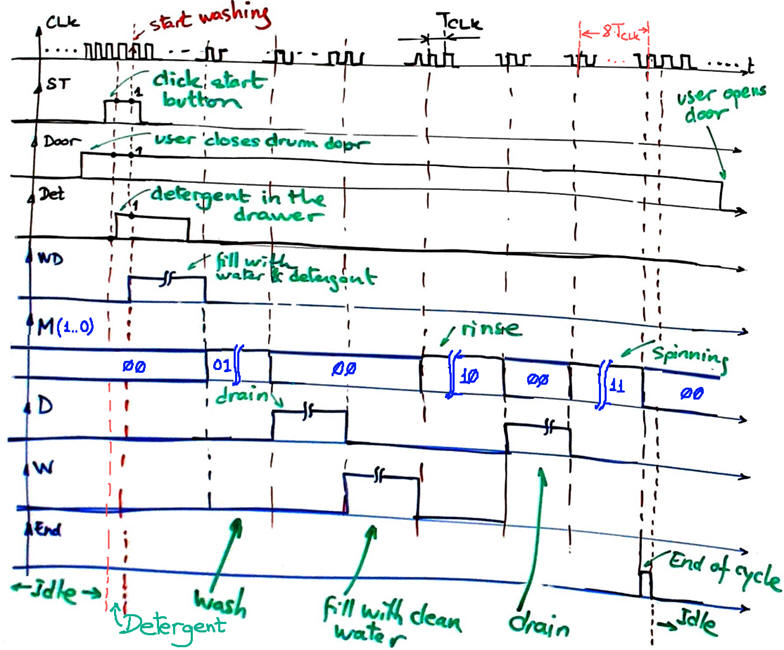 start washing
CLK
TCLK
8·TCLK
t
ST
click start
button
1
user opens
door
Door
user closes drum door
1
Det
detergent in the
drawer
1
WD
fill with
water & detergent
M(1..0)
rinse
spinning
00
01
00
10
00
11
00
D
drain
W
End
End of cycle
Idle
wash
fill with clean
water
drain
Idle
Detergent